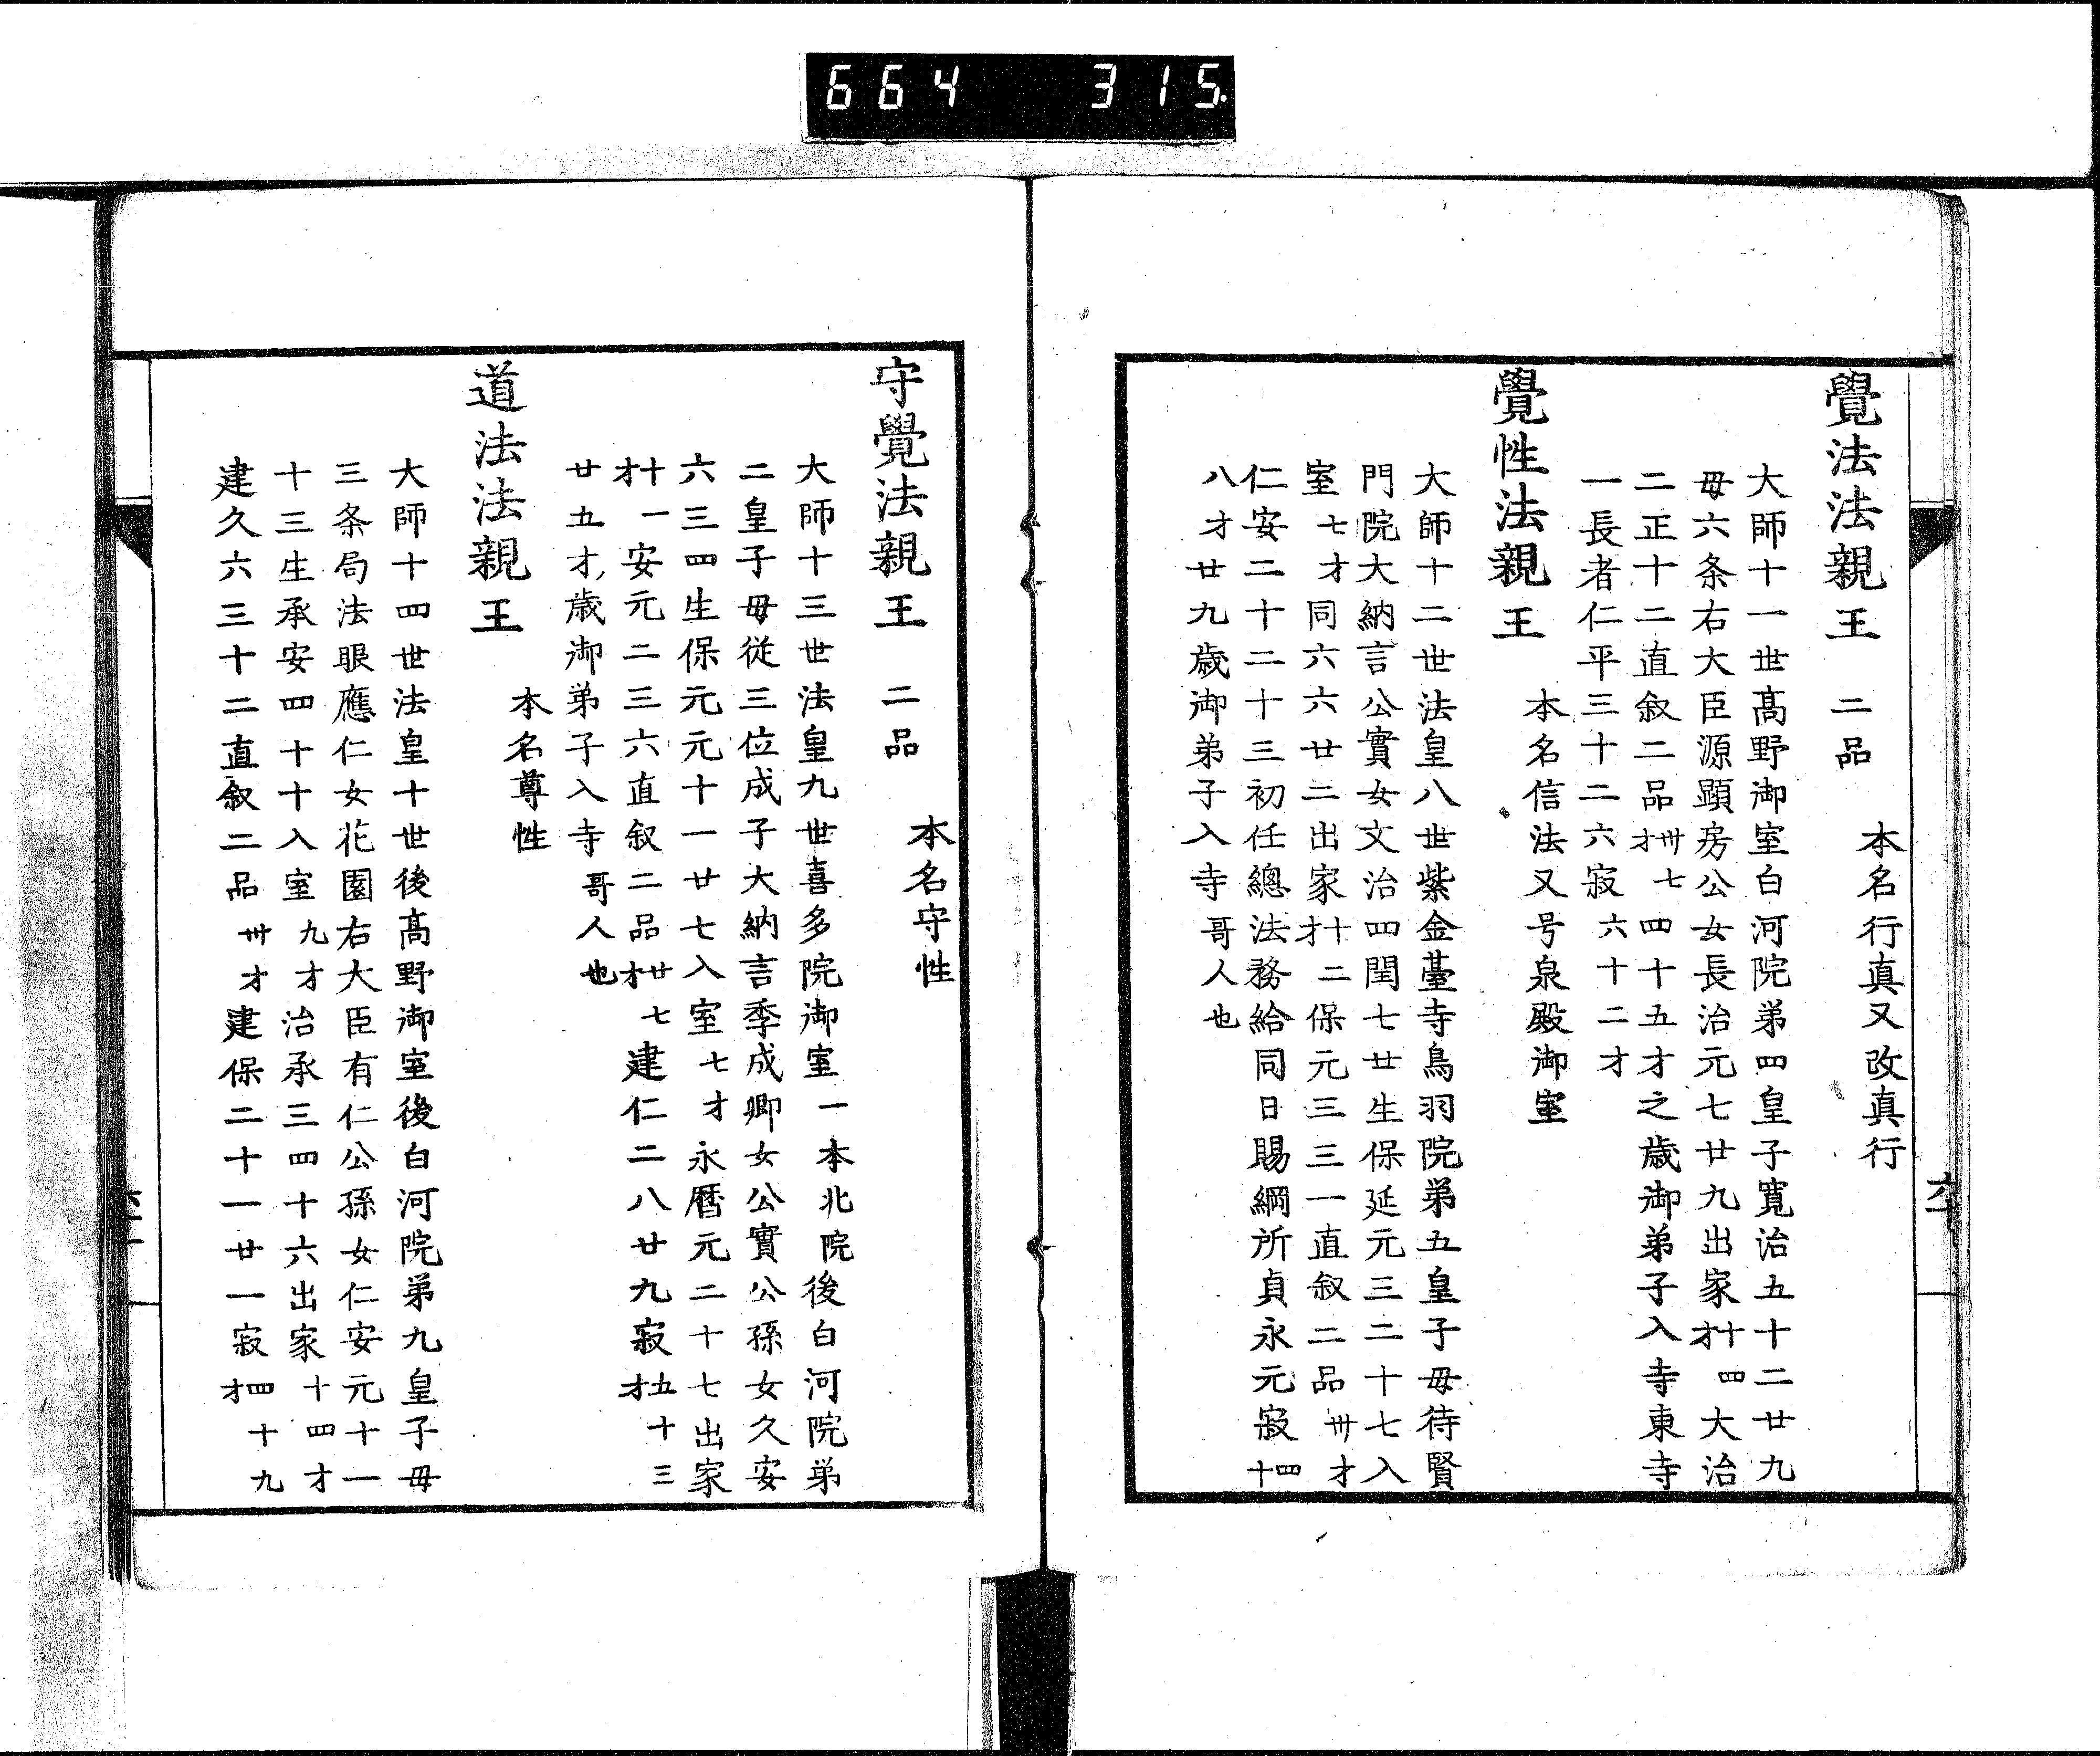 664 315.
覺法法親王 二品 本名行真又改真行
大師十一世髙野御室白河院弟四皇子寛治五十二廿九
母六条右大臣源顕房公女長治元七廿九出家十四才大治
二正十二直叙二品卅七才四十五才之歳御弟子入寺東寺
一長者仁平三十二六寂六十二才
覺性法親王 本名信法又号泉殿御室
大師十二世法皇八世紫金臺寺鳥羽院弟五皇子母待賢
門院大納言公實女文治四閏七廿生保延元三二十七入
室七才同六六廿二出家十二才保元三三一直叙二品卅才
仁安二十二十三初任總法務給同日賜綱所貞永元寂四十
八才廿九歳御弟子入寺哥人也
守覺法親王 二品 本名守性
大師十三世法皇九世喜多院御室一本北院後白河院弟
二皇子母従三位成子大納言季成卿女公實公孫女久安
六三四生保元元十一廿七入室七才永暦元二十七出家
十一才安元二三六直叙二品廿七才建仁二八廿九寂五十三才
廿五才歳御弟子入寺哥人也
道法法親王 本名尊性
大師十四世法皇十世後髙野御室後白河院弟九皇子母
三条局法眼應仁女花園右大臣有仁公孫女仁安元十一
十三生承安四十十入室九才治承三四十六出家十四才
建久六三十二直叙二品卅才建保二十一廿一寂四十九才